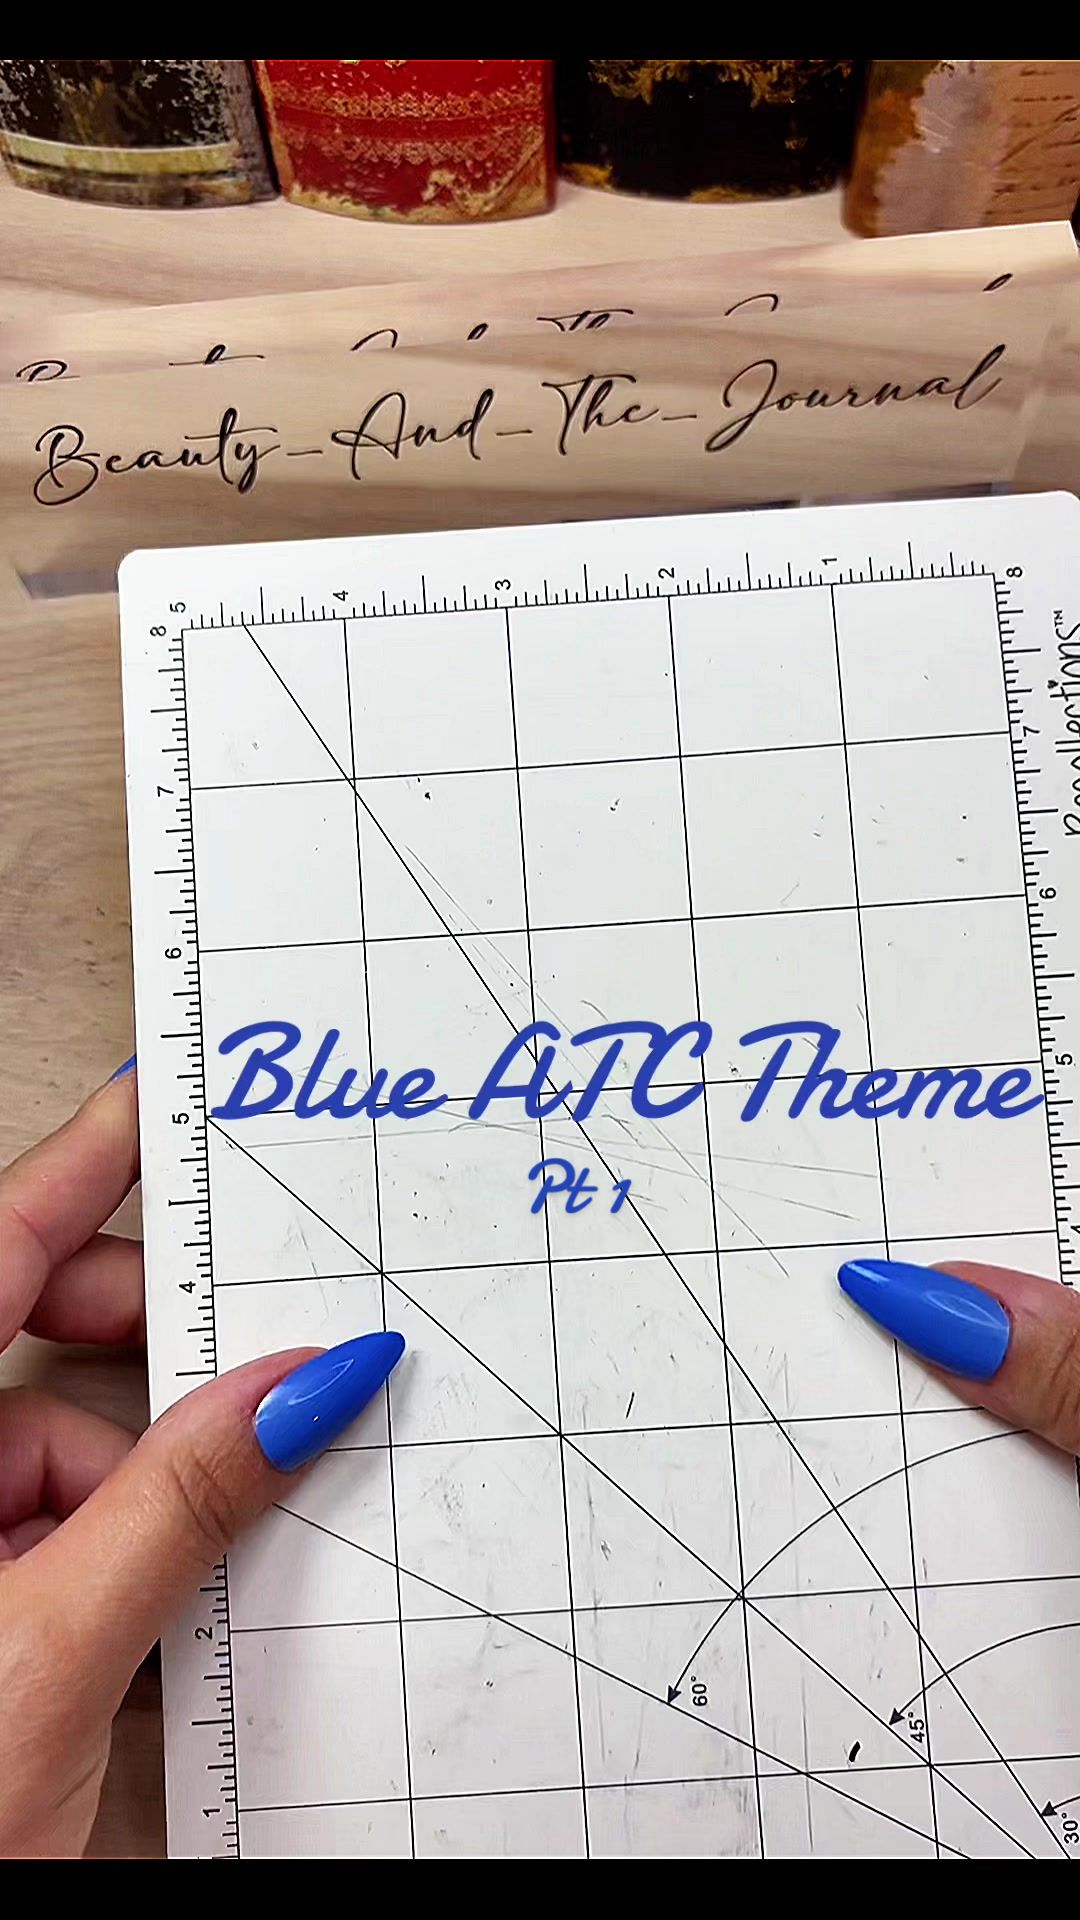 Beauty_And_The_Journal
5 4 3 2 1 8
8
7
7
Recollections™
6
6
5
Blue ATC Theme
5
Pt 1
4
60°
2
45°
1
30°